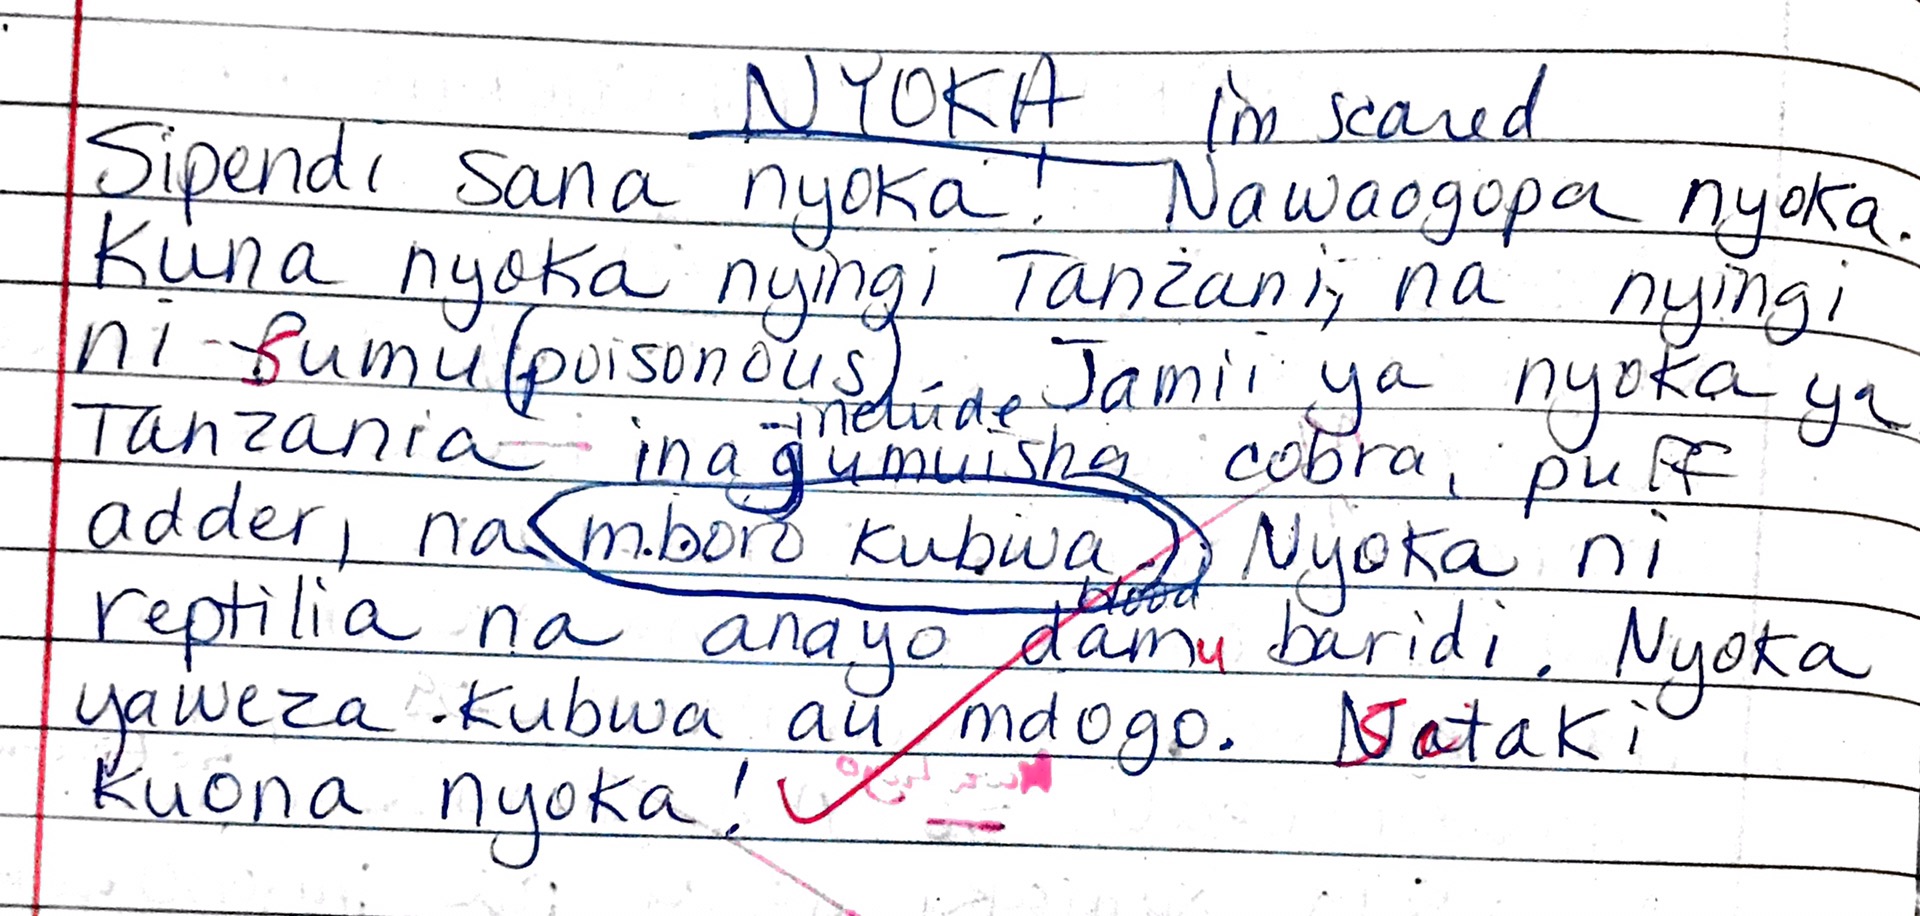 NYOKA I'm scared
Sipendi sana nyoka! Nawaogopa nyoka.
Kuna nyoka nyingi Tanzani, na nyingi
ni sumu (poisonous). Jamii ya nyoka ya
include
Tanzania inagumuisha cobra, puff
adder, na mboro kubwa. Nyoka ni
blood
reptilia na anayo damu baridi. Nyoka
yaweza kubwa au mdogo. Sitaki
kuona nyoka!